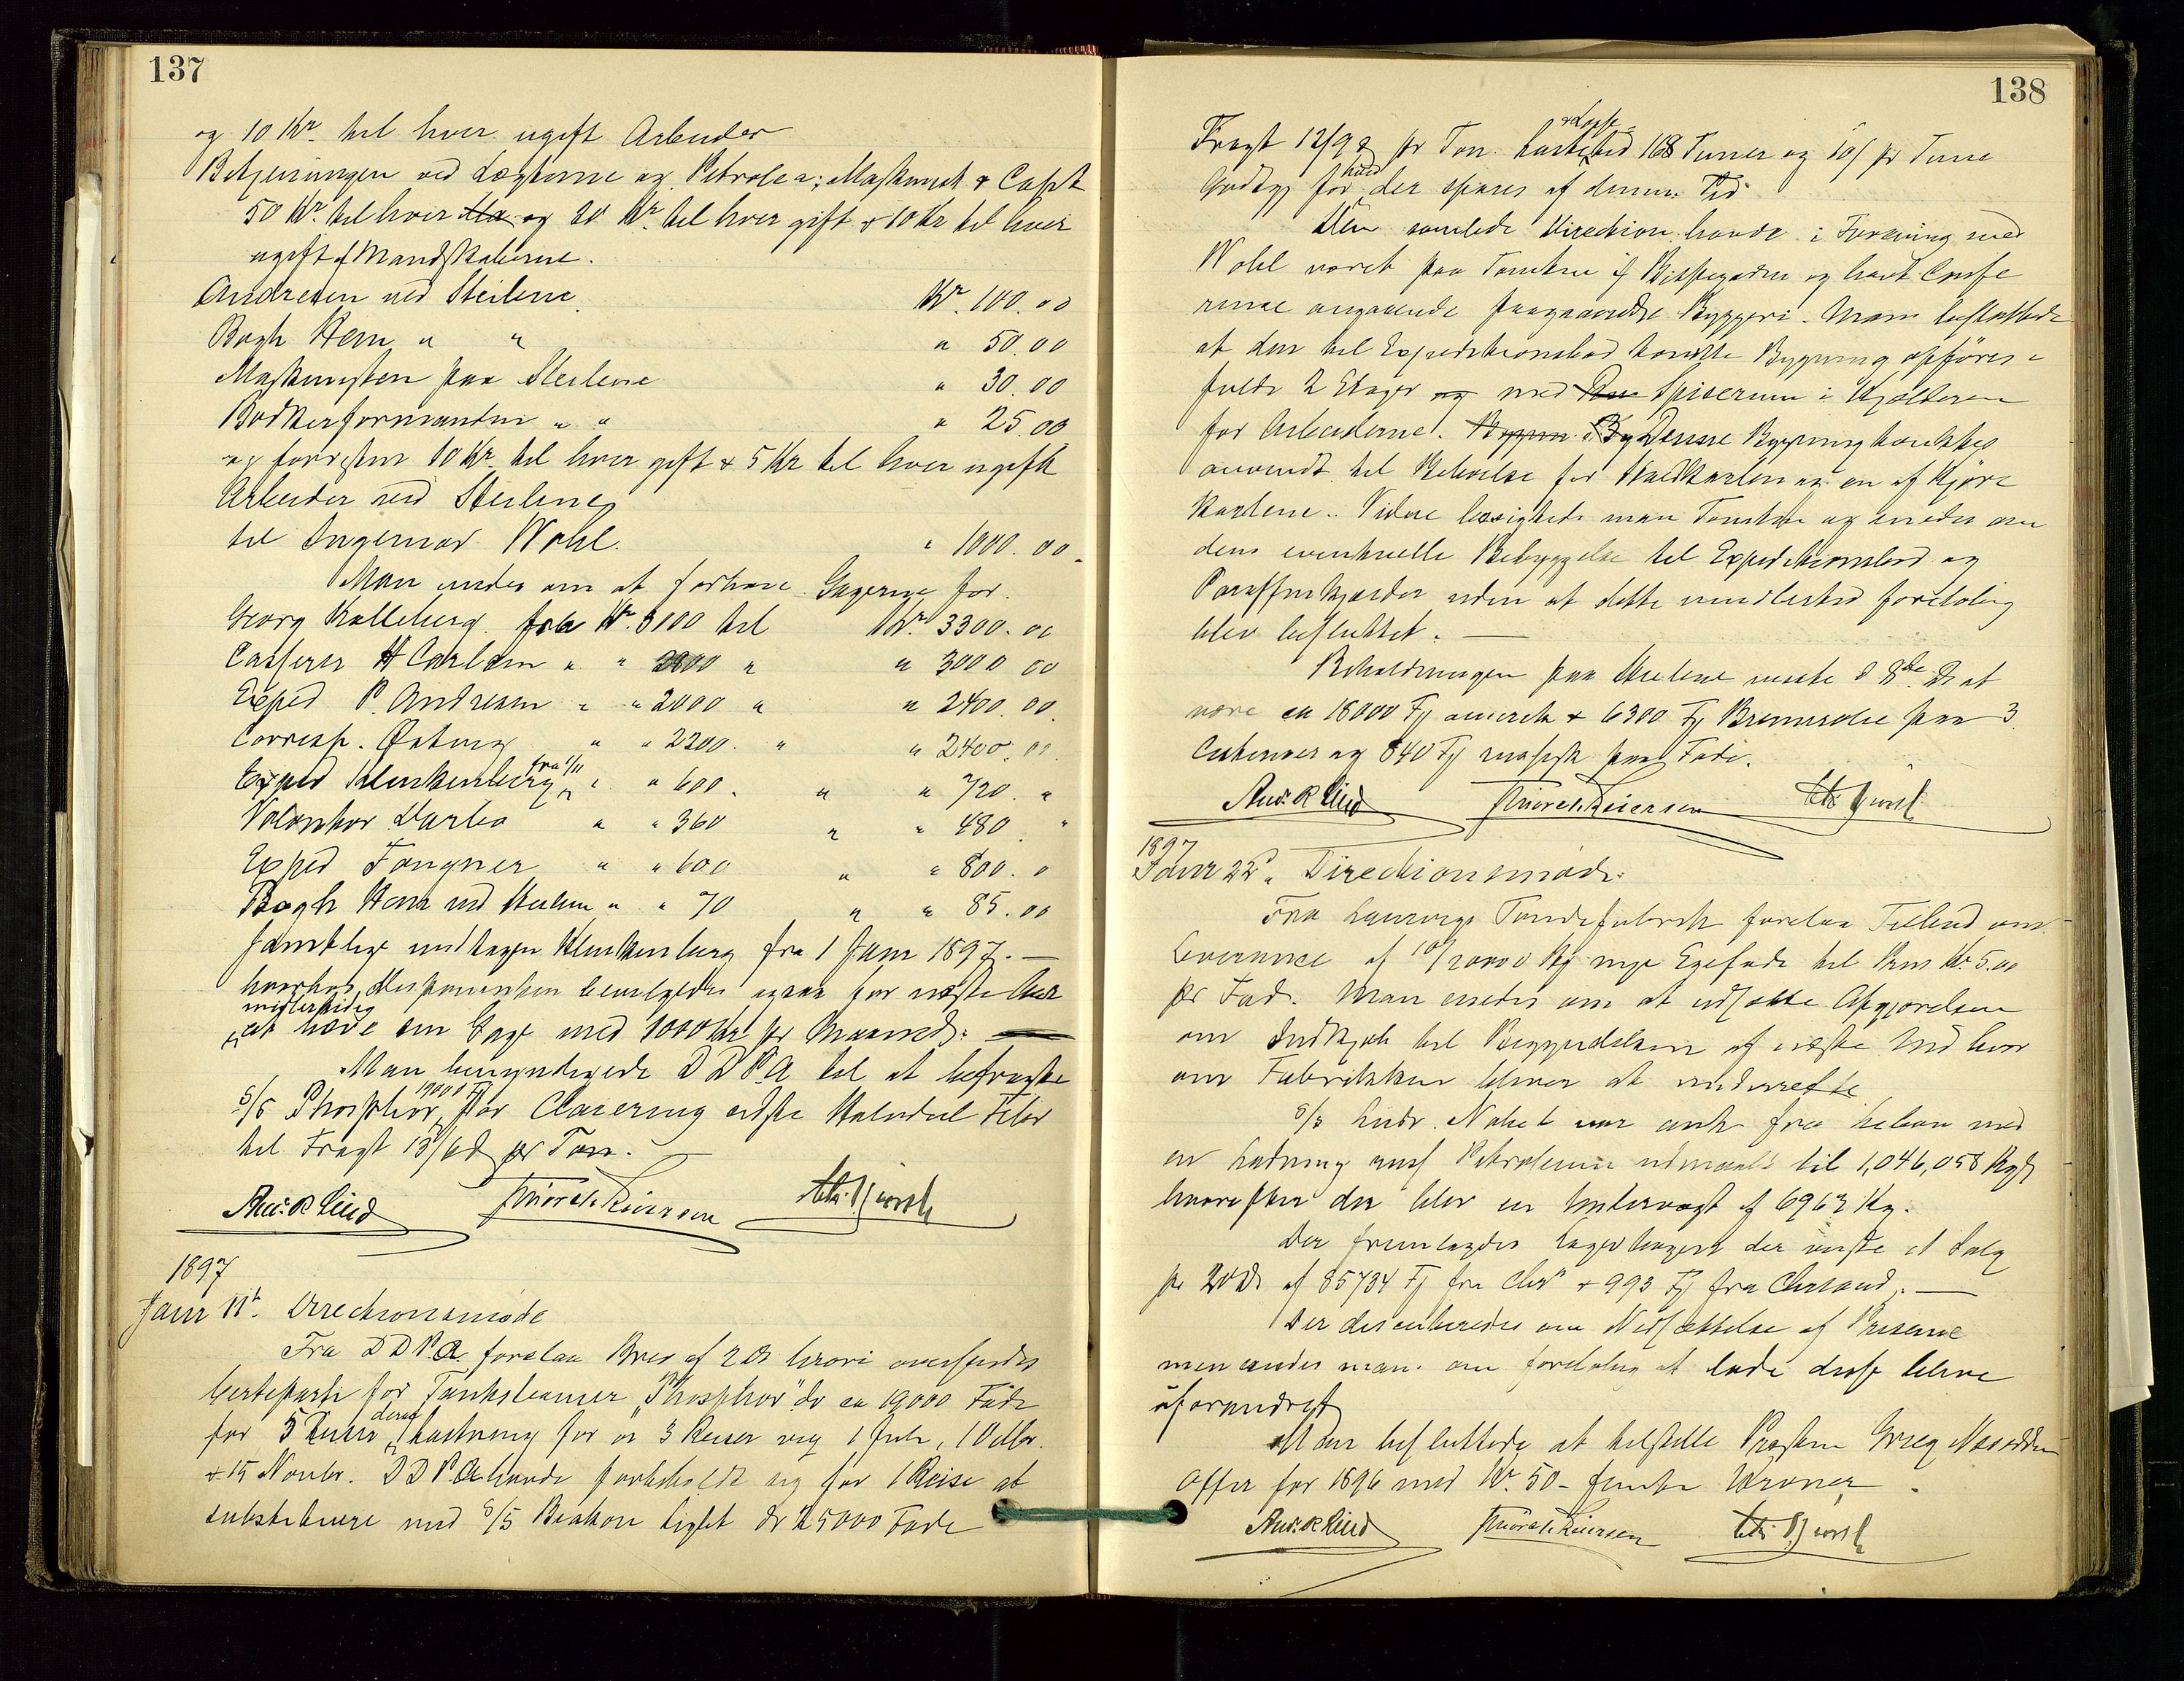 137
og 10 Kr. til hver ugift Arbeider
Betjeningen ved Lægterne og Petrolea; Maskinist & Capt
50 Kr. til hver og 20 Kr. til hver gift & 10 Kr til hver
ugift af Mandskaberne.
Andresen ved Steilene Kr. 100.00
Bogh Hem " " " 50.00
Maskinisten paa Steilene " 30.00
Bødkerformanden " " " 25.00
og forresten 10 Kr. til hver gift & 5 Kr til hver ugift
Arbeider ved Steilene
til Ingeniør Wohl. " 1000.00
Man enedes om at forhøie Gagerne for
Georg Kalleberg fra Kr. 3100 til Kr. 3300.00
Casserer H Carlsen " " " " 3000 00
Exped P. Andresen " " 2000 " " 2400.00
Corresp. Østbye " " 2200. " " 2400.00
fra 1/11
Exped Klenkenberg " " 600. " " 720. "
Volontør Darbo " " 360 " " 480. "
Exped Fangner " " 600 " " 800. "
Bogh Hem ved Steilene " " 70 " " 85.00
samtlige undtagen Klenkenberg fra 1 Janr 1897. —
hvorhos Disponenten bevilgedes ogsaa for næste Aar
midlertidig
at hæve sin Gage med 1000 Kr pr Maaned. —
Man bemyndigede D D P.A til at befragte
S/S Phosphor, for Clarering sidste Halvdel Febr
til Fragt 13/6d pr Ton. —
And: R Lind Thorvald Iversen Chr: Bjorch
1897
Janr 11t. Directionsmøde
Fra D D P A. forelaa Brev af 2 ds hvori oversendes
Certeparti for Tanksteamer "Phosphor" dr ca 19000 Fade
for 5 Reiser, deraf Lastning for de 3 Reiser og 1 Juli, 1 Octbr.
& 15 Novbr. D D P A havde forbeholdt sig for 1 Reise at
substituere med S/S Beakon light dr 25000 Fade
138
& Losse-
Fragt 12/9 d pr Ton. Laste tid 168 Timer og 10/ pr Time
Godtgj for hver der spares af denne Tid
Den samlede Direction havde i Forening med
Wohl været paa Tomten i Bispegaden og havt Confe
rence angaaende paagaaende Byggeri. Man besluttede
at den til Expeditionsbod tænkte Bygning opføres i
fulde 2 Etager med Spiserum i Kjælderen
for Arbeiderne. Denne Bygning tænktes
anvendt til Beboelse for Staldkarlen og en af Kjøre
karlene. Videre besigtede man Tomten og enedes om
dens eventuelle Bebyggelse til Expeditionsbod og
Paraffinkjælder uden at dette imidlertid foreløbig
blev besluttet. —
Beholdningen paa Steilene viste d 8de Ds at
være ca 18000 Fj amerik & 6300 Fj Brændolie paa 3
Cisterner og 840 Fj russisk paa Fade.
And: R Lind Thorvald Iversen Chr: Bjorch
1897
Janr 22d. Directionsmøde.
Fra Laurvigs Tøndefabrik forelaa Tilbud om
Leverance af 10/20000 Stk nye Egefade til Pris Kr. 5.00
pr Fad. Man enedes om at udsætte Afgjørelsen
om Indkjøb til Begyndelsen af næste Md hvor
om Fabrikken bliver at underrette
S/S Ludv. Nobel var ank fra Libau med
en Ladning russ Petroleum udmaalt til 1,046,058 Kg
hvorefter der blev en Undervægt af 6963 Kg.
Der fremlagdes Lageropgjør der viste et Salg
pr 20 Ds af 85734 Fj fra Chra & 993 Fj fra Chrsand. —
Der discuteredes om Nedsættelse af Priserne
men enedes man om foreløbig at lade disse blive
uforandret
Man besluttede at tilstille Præsten Grieg Næsodden
Offer for 1896 med Kr. 50 - femti Kroner.
And: R Lind Thorvald Iversen Chr: Bjorch